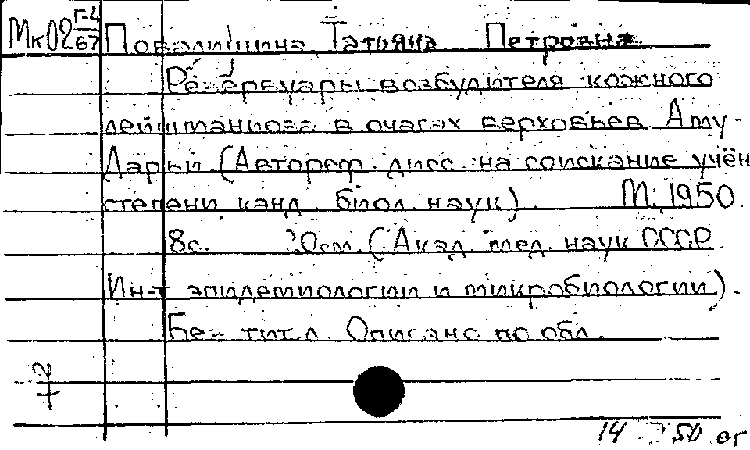 Мк02 Г-2/67 Повалишина Татьяна Петровна
Резервуары возбудителя кожного
лейшманиоза в очагах верховьев Аму-
Дарьи (Автореф. дисс. на соискание учён
степени канд. биол. наук). М. 1950.
8с. 20см. (Акад. мед. наук СССР.
Ин-т эпидемиологии и микробиологии).
Без тит.л. Описано по обл.
14 50 ог